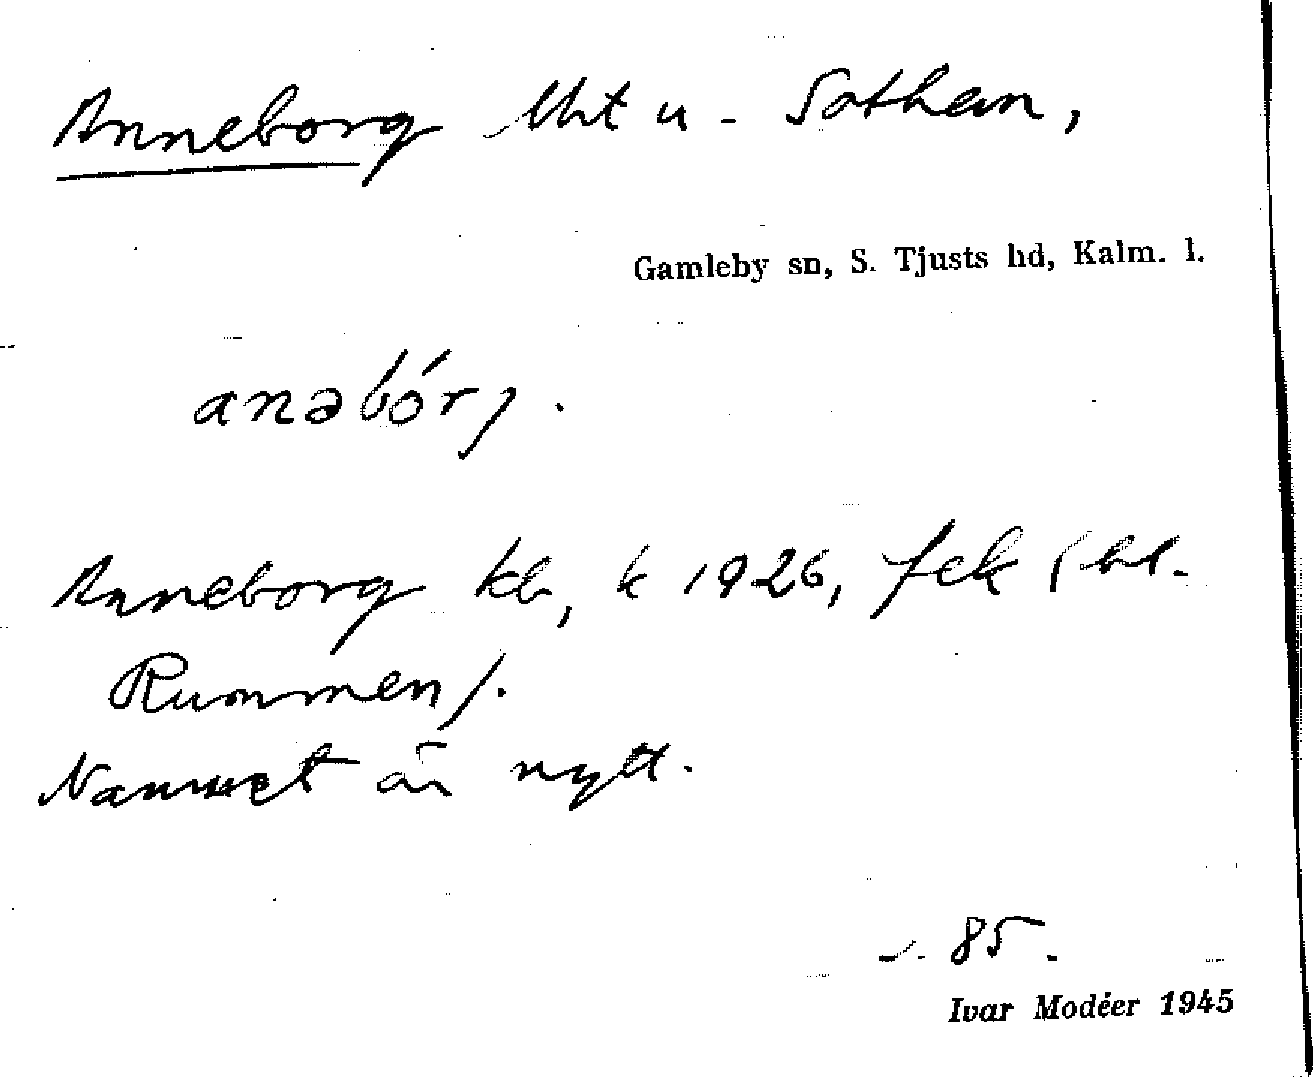 Anneborg lht u. Sothem,
Gamleby sn, S. Tjusts hd, Kalm. l.
anəbórj.
Anneborg kb, k 1926, fek (bl.
Rummen).
Namnet är nytt.
85.
Ivar Modéer 1945